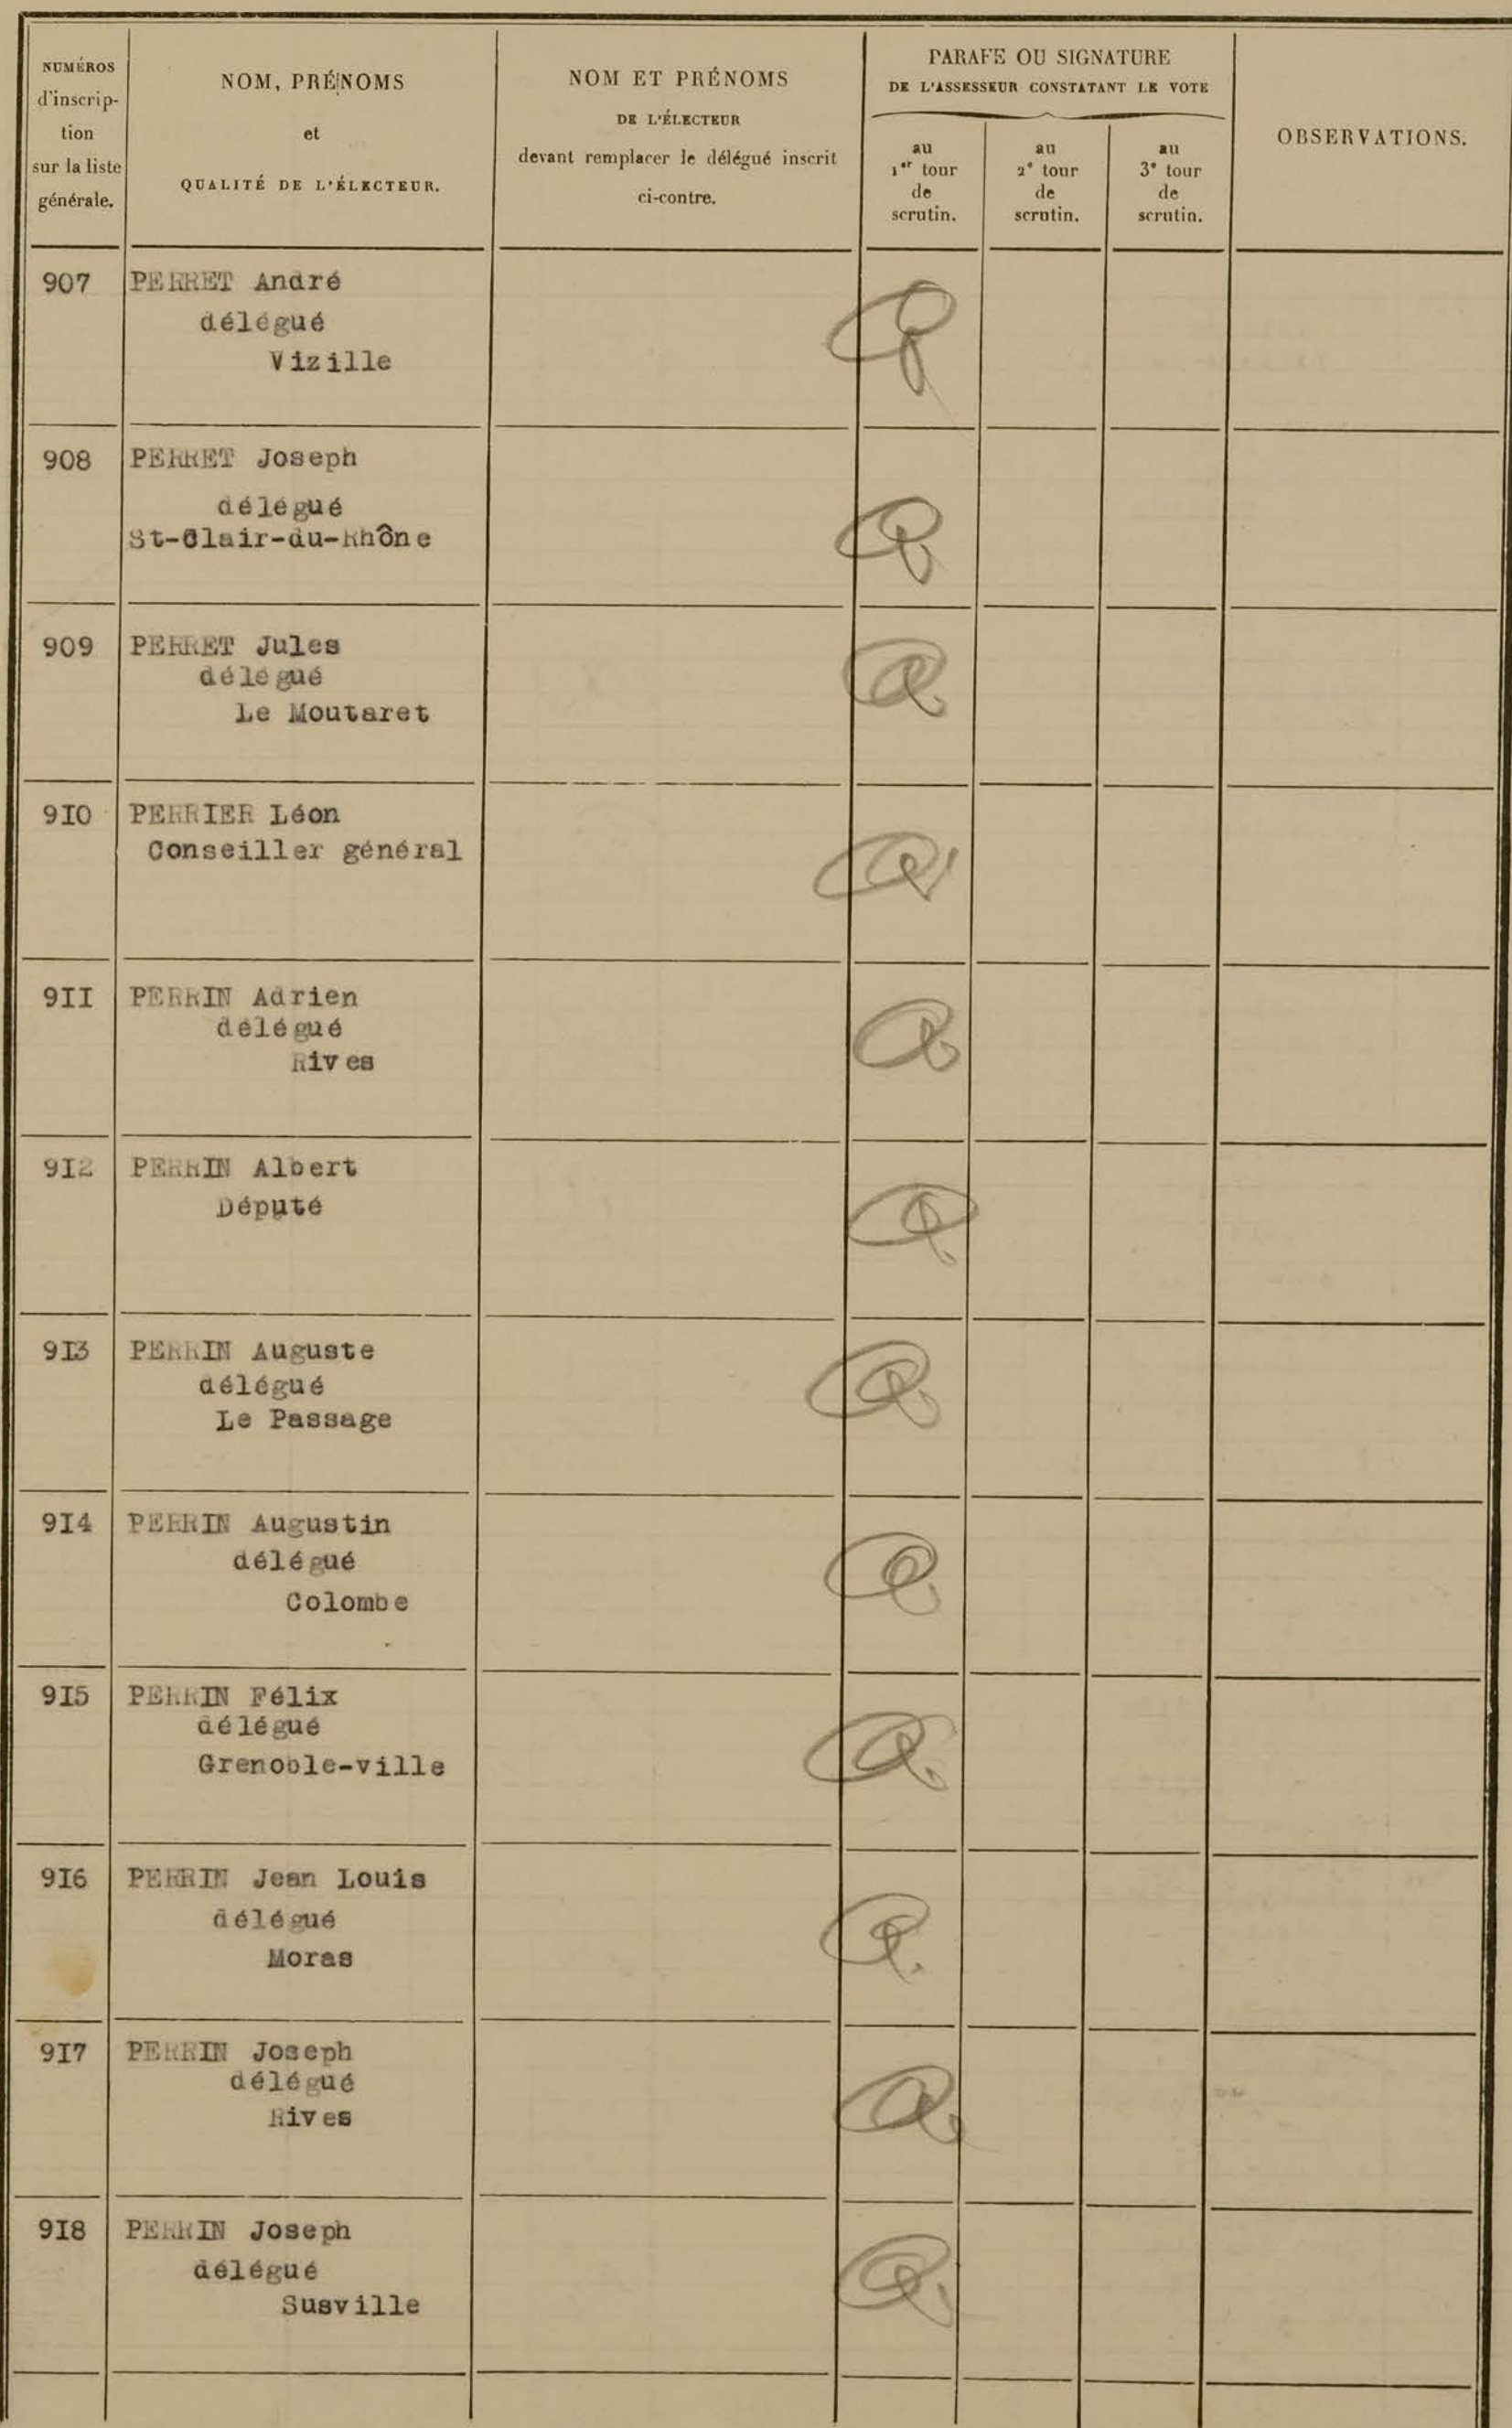 NUMÉROS
d'inscrip-
tion
sur la liste
générale.
NOM, PRÉNOMS
et
QUALITÉ DE L'ÉLECTEUR.
NOM ET PRÉNOMS
DE L'ÉLECTEUR
devant remplacer le délégué inscrit
ci-contre.
PARAFE OU SIGNATURE
DE L'ASSESSEUR CONSTATANT LE VOTE
au
1er tour
de
scrutin.
au
2e tour
de
scrutin.
au
3e tour
de
scrutin.
OBSERVATIONS.
907 PERRET André
délégué
Vizille
908 PERRET Joseph
délégué
St-Clair-du-Rhône
909 PERRET Jules
délégué
Le Moutaret
9I0 PERRIER Léon
Conseiller général
9II PERRIN Adrien
délégué
Rives
9I2 PERRIN Albert
Député
9I3 PERRIN Auguste
délégué
Le Passage
9I4 PERRIN Augustin
délégué
Colombe
9I5 PERRIN Félix
délégué
Grenoble-ville
9I6 PERRIN Jean Louis
délégué
Moras
9I7 PERRIN Joseph
délégué
Rives
9I8 PERRIN Joseph
délégué
Susville